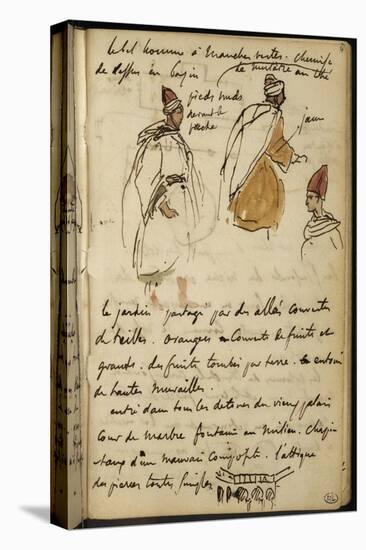 le bel homme à manches vertes. chemise
de dessus en basin
le mulâtre au thé
pieds nuds
devant le
jaune
le jardin partagé par des allées couvertes
de treilles. orangers couverts de fruits et
grands. des fruits tombés par terre. entouré
de hautes murailles.
entré dans tous les détours du vieux palais
cour de marbre fontaine au milieu. chapi-
teaux d'un mauvais composite. l'attique
des pierres toutes simples